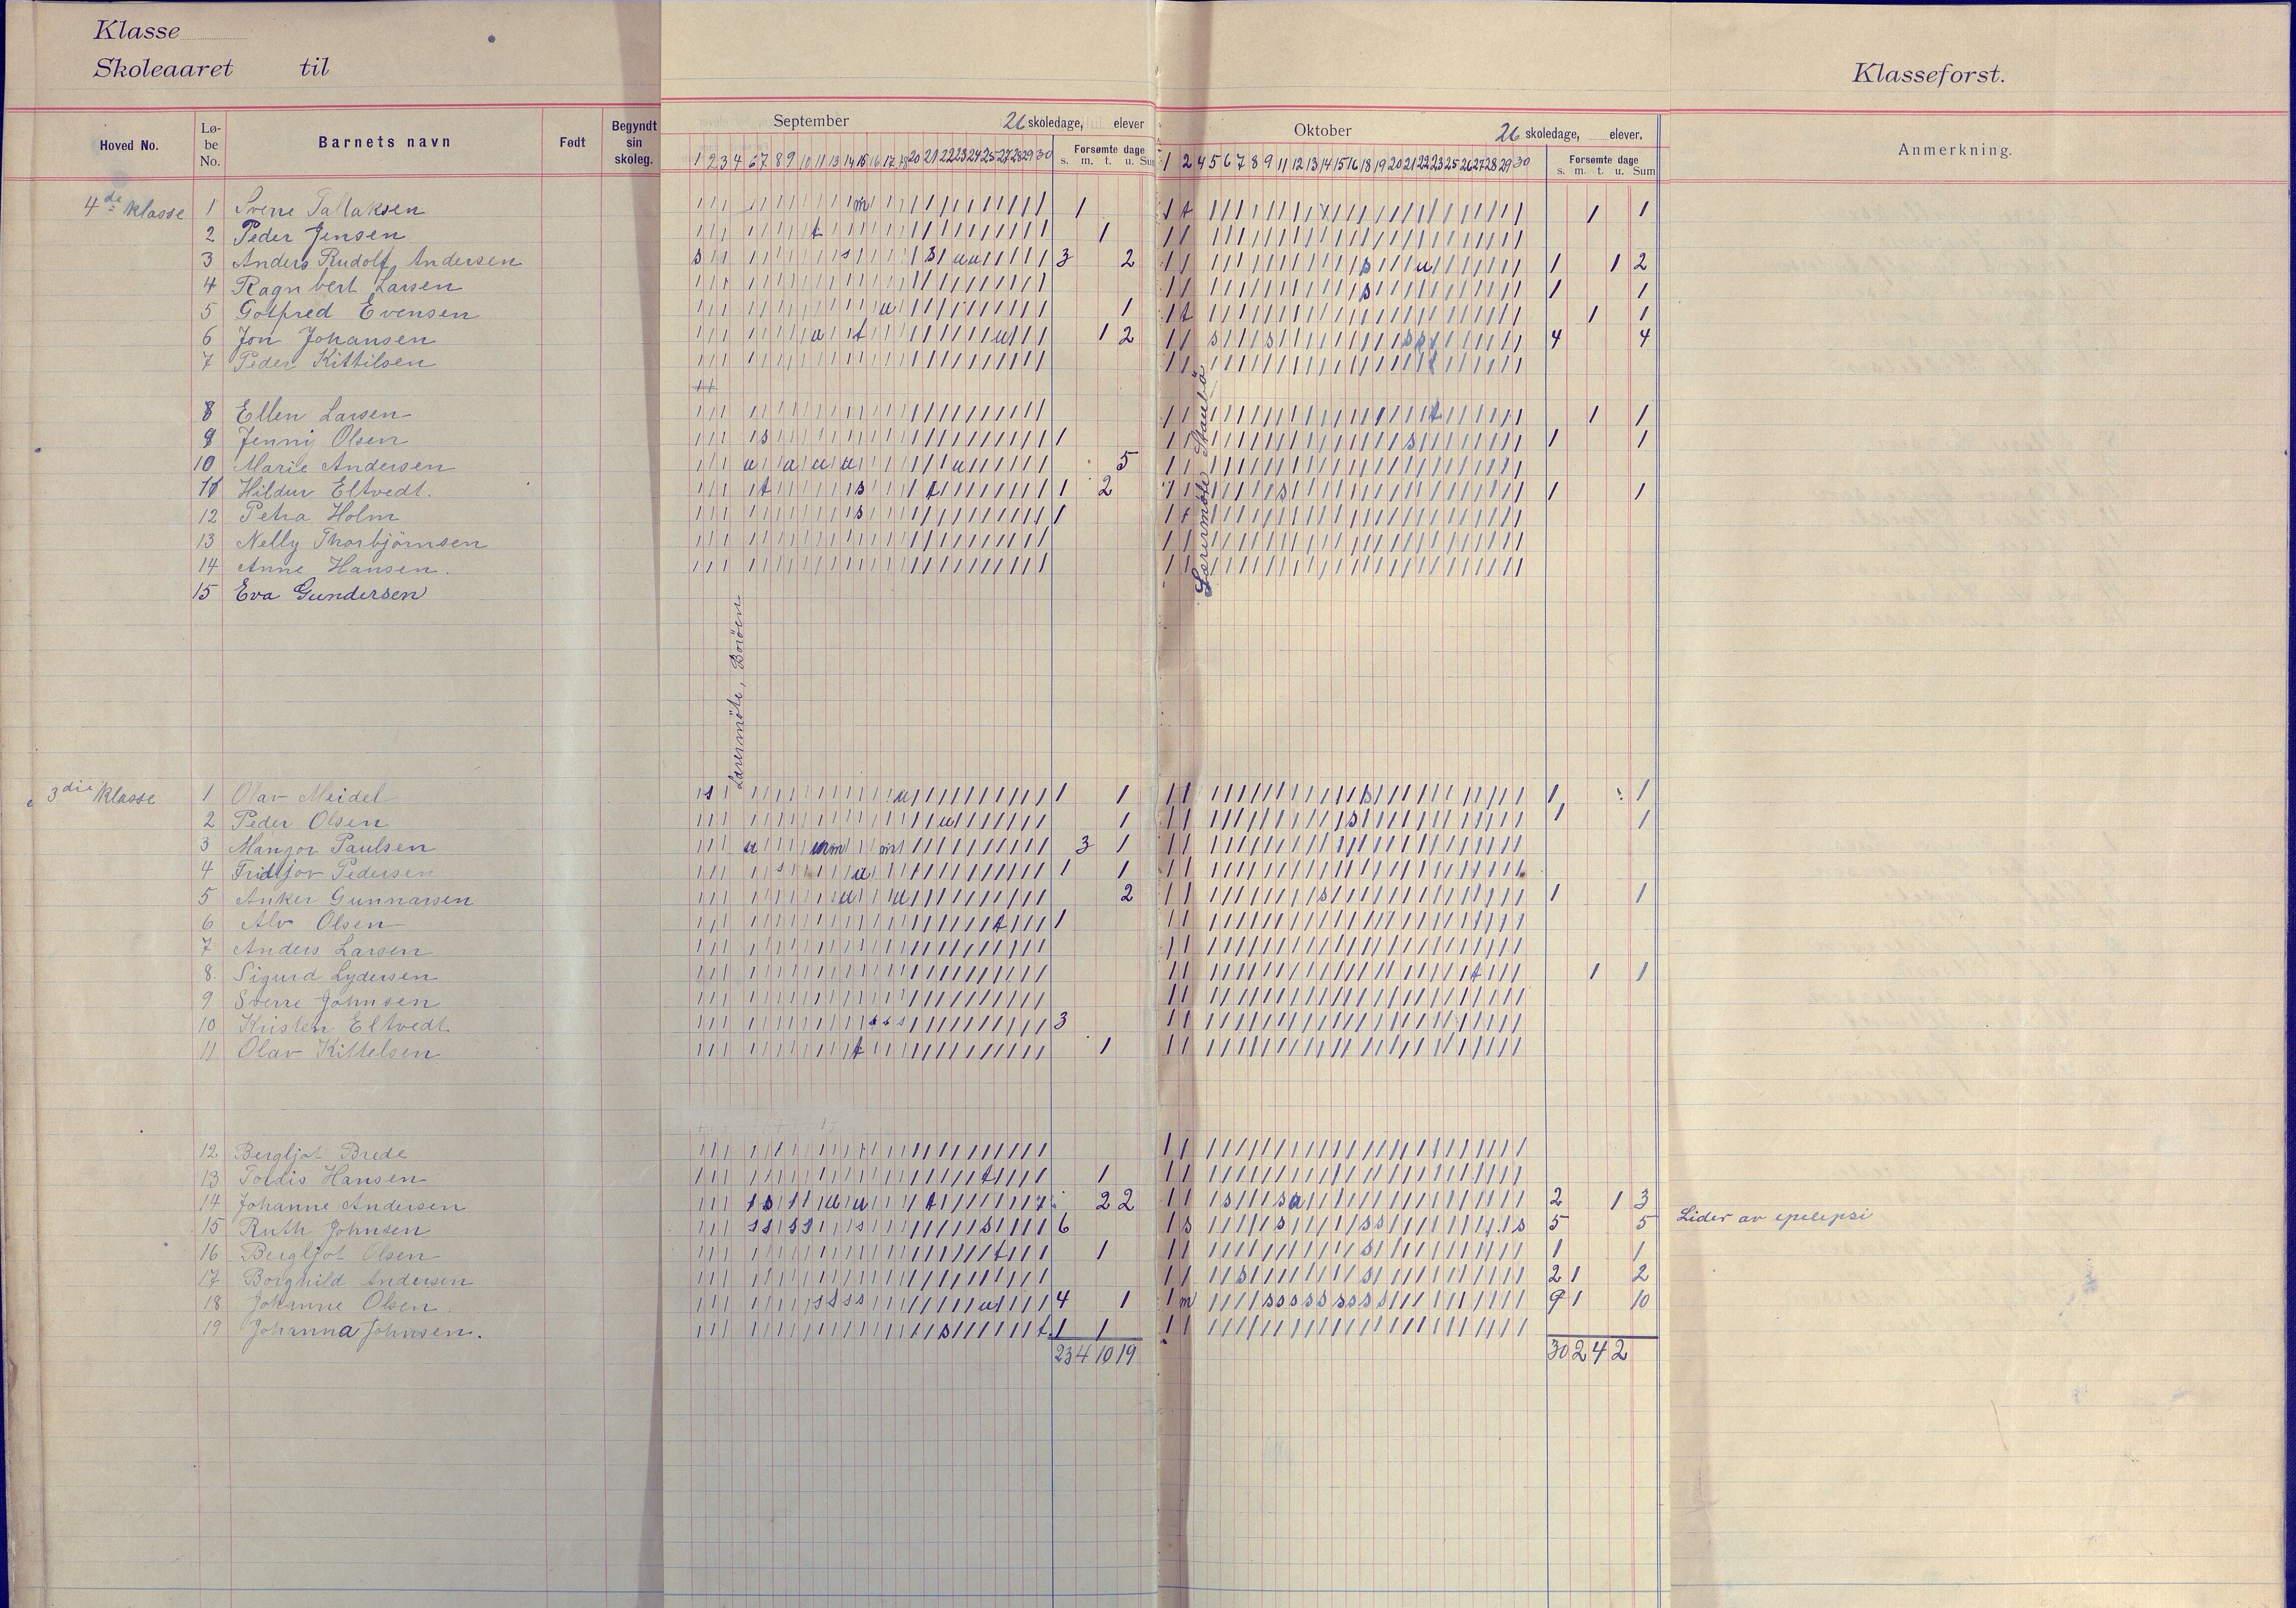 Klasse
Skoleaaret til
Klasseforst.
Hoved No.
Lø-
be
No.
Barnets navn
Født
Begyndt
sin
skoleg.
September 26 skoledage, elever
1 2 3 4 6 7 8 9 10 11 13 14 15 16 17 18 20 21 22 23 24 25 27 28 29 30
Forsømte dage
s. m. t. u. Sum
Oktober 26 skoledage, elever.
1 2 4 5 6 7 8 9 11 12 13 14 15 16 18 19 20 21 22 23 25 26 27 28 29 30
Forsømte dage
s. m. t. u. Sum
Anmerkning.
4de klasse 1 Sverre Tallaksen 1 1 1
2 Peder Jensen 1
3 Anders Rudolf Andersen 3 2 1 1 2
4 Ragnvert Larsen 1 1
5 Gotfred Evensen 1 1 1
6 Jon Johansen 1 2 4 4
7 Peder Kittilsen
8 Ellen Larsen 1 1
9 Jenny Olsen 1 1 1
10 Marie Andersen 5
11 Hildur Eltvedt. 1 2 1 1
12 Petra Holm 1
13 Nelly Thorbjörnsen
14 Anne Hansen.
15 Eva Gundersen
Lærermöte, Boröen
Lærermöte Staubö
3die klasse 1 Olav Meidel 1 1 1 1
2 Peder Olsen 1 1 1
3 Mangor Paulsen 3 1
4 Fridtjov Pedersen 1 1
5 Anker Gunnarsen 2 1 1
6 Alv Olsen 1
7 Anders Larsen
8 Sigurd Lydersen 1 1
9 Sverre Johnsen
10 Kristen Eltvedt. 3
11 Olav Kittelsen 1
12 Bergljot Brede
13 Tordis Hansen 1
14 Johanne Andersen 2 2 2 1 3
15 Ruth Johnsen 6 5 5 Lider av epelepsi
16 Bergljot Olsen 1 1 1
17 Borghild Andersen 2 1 2
18 Johanne Olsen. 4 1 9 1 10
19 Johanna Johnsen. 1 1
23 4 10 19 30 2 4 2